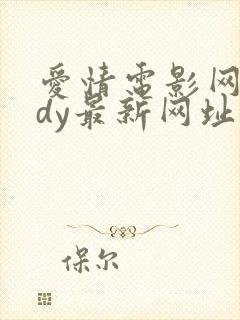 爱情电影网
dy最新网址
保尔